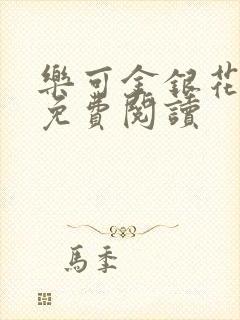 樂可金銀花
免費閱讀
馬季